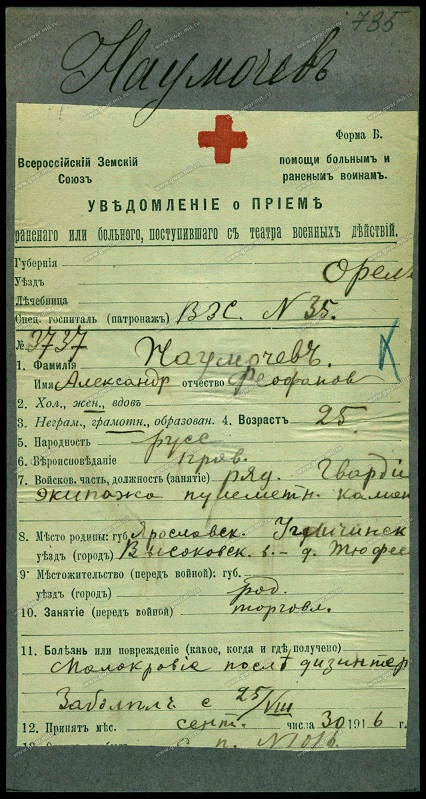 735
Наумочевъ
Форма Б.
Всероссійскій Земскій Союзъ
помощи больнымъ и раненымъ воинамъ.
УВѢДОМЛЕНІЕ о ПРІЕМѢ
раненаго или больного, поступившаго съ театра военныхъ дѣйствій.
Губернія
Уѣздъ Орел
Лѣчебница
Спец. госпиталь (патронажъ) ВЗС. N 35.
№ 3737
1. Фамилія Наумочевъ.
Имя Александр отчество Феофанов
2. Хол., жен., вдовъ
3. Неграм., грамотн., образован. 4. Возрастъ 25
5. Народность русс
6. Вѣроисповѣданіе прав.
7. Войсков. часть, должность (занятіе) ряд. Гварді
экипажа пулеметн.
8. Мѣсто родины: губ. Ярославск.
уѣздъ (городъ) Высоковск. в. – д.
9. Мѣстожительство (передъ войной): губ.
уѣздъ (городъ) род.
10. Занятіе (передъ войной) торговл.
11. Болѣзнь или поврежденіе (какое, когда и гдѣ получено)
Малокровіе послѣ дизинтер
Заболѣлъ с 25/VIII
12. Принятъ мѣс. сент. числа 30 1916 г.
www.gwar.mil.ru